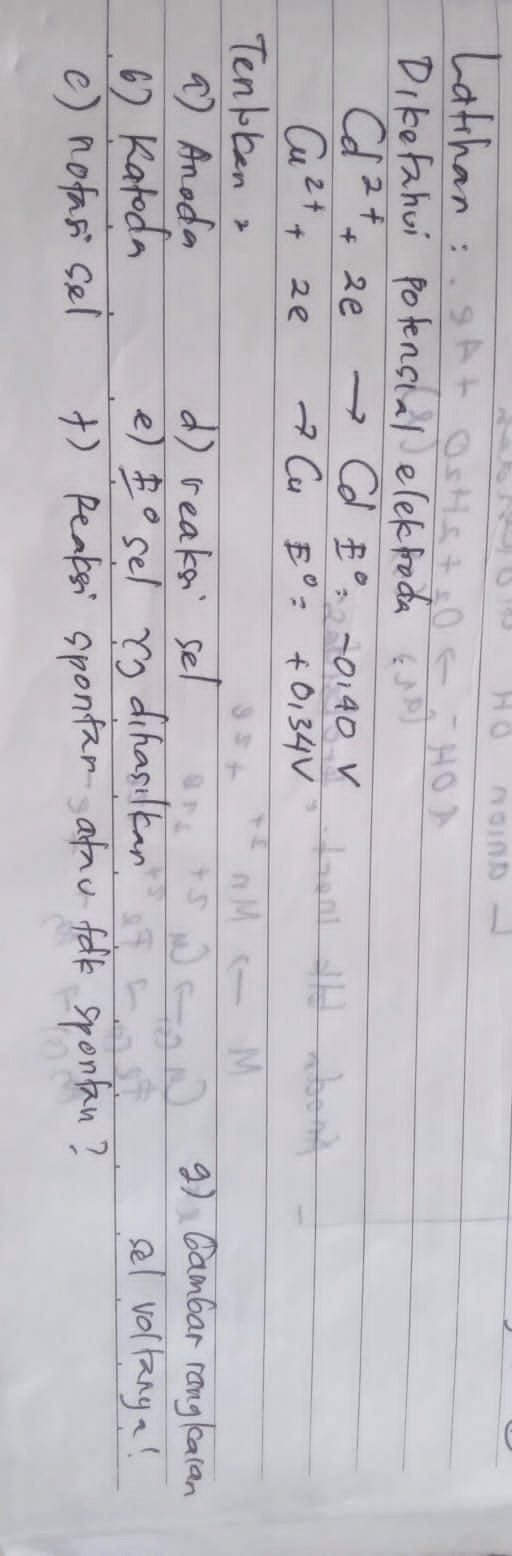 Latihan :
Diketahui potensial elektroda
Cd²⁺ + 2e → Cd E° = -0,40 V
Cu²⁺ + 2e → Cu E° = +0,34V
Tentukan :
a) Anoda d) reaksi sel g) Gambar rangkaian
b) Katoda e) E° sel yg dihasilkan sel voltanya!
c) notasi sel f) Reaksi spontan atau tdk spontan?